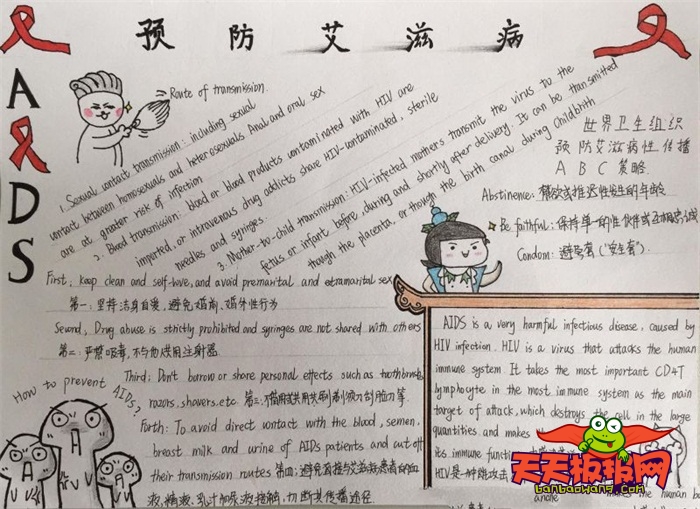 预防艾滋病
AIDS
Route of transmission.
1. Sexual contact transmission: including sexual
contact between homosexuals and heterosexuals. Anal and oral sex
are at greater risk of infection
2. Blood transmission: blood or blood products contaminated with HIV are
imparted, or intravenous drug addicts share HIV-contaminated, sterile
needles and syringes.
3. Mother-to-child transmission: HIV-infected mothers transmit the virus to the
fetus or infant before, during and shortly after delivery. It can be transmitted
though the placenta, or though the birth canal during Childbith
世界卫生组织
预防艾滋病性传播
A B C 策略.
Abstinence: 禁欲或推迟性生的年龄
Be faithful: 保持单一的性伙伴或互相忠
Condom: 避孕套("安全套")
First, keep clean and self-love, and avoid premarital and extramarital sex
第一: 坚持洁身自爱, 避免婚前、婚外性行为
Second, Drug abuse is strictly prohibited and syringes are not shared with others
第二: 严禁吸毒, 不与他人共用注射器
How to prevent
AIDs?
Third: Don't borrow or share personal effects such as toothbrush,
razors, shavers, etc. 第三: 不借用或共用牙刷剃须刀刮脸刀等
Forth: To avoid direct contact with the blood, semen,
breast milk and urine of AIDs patients and cut off
their transmission routes 第四: 避免直接与艾滋病患者的血
液、精液、乳汁和尿液接触, 切断其传播途径
AIDS is a very harmful infectious disease, caused by
HIV infection. HIV is a virus that attacks the human
immune system. It takes the most important CD4T
lymphocyte in the most immune system as the main
target of attack, which destroys the cell in large
quantities and makes the
its immune function
HIV是一种
makes the human b
天天板报网
banbaowang.com